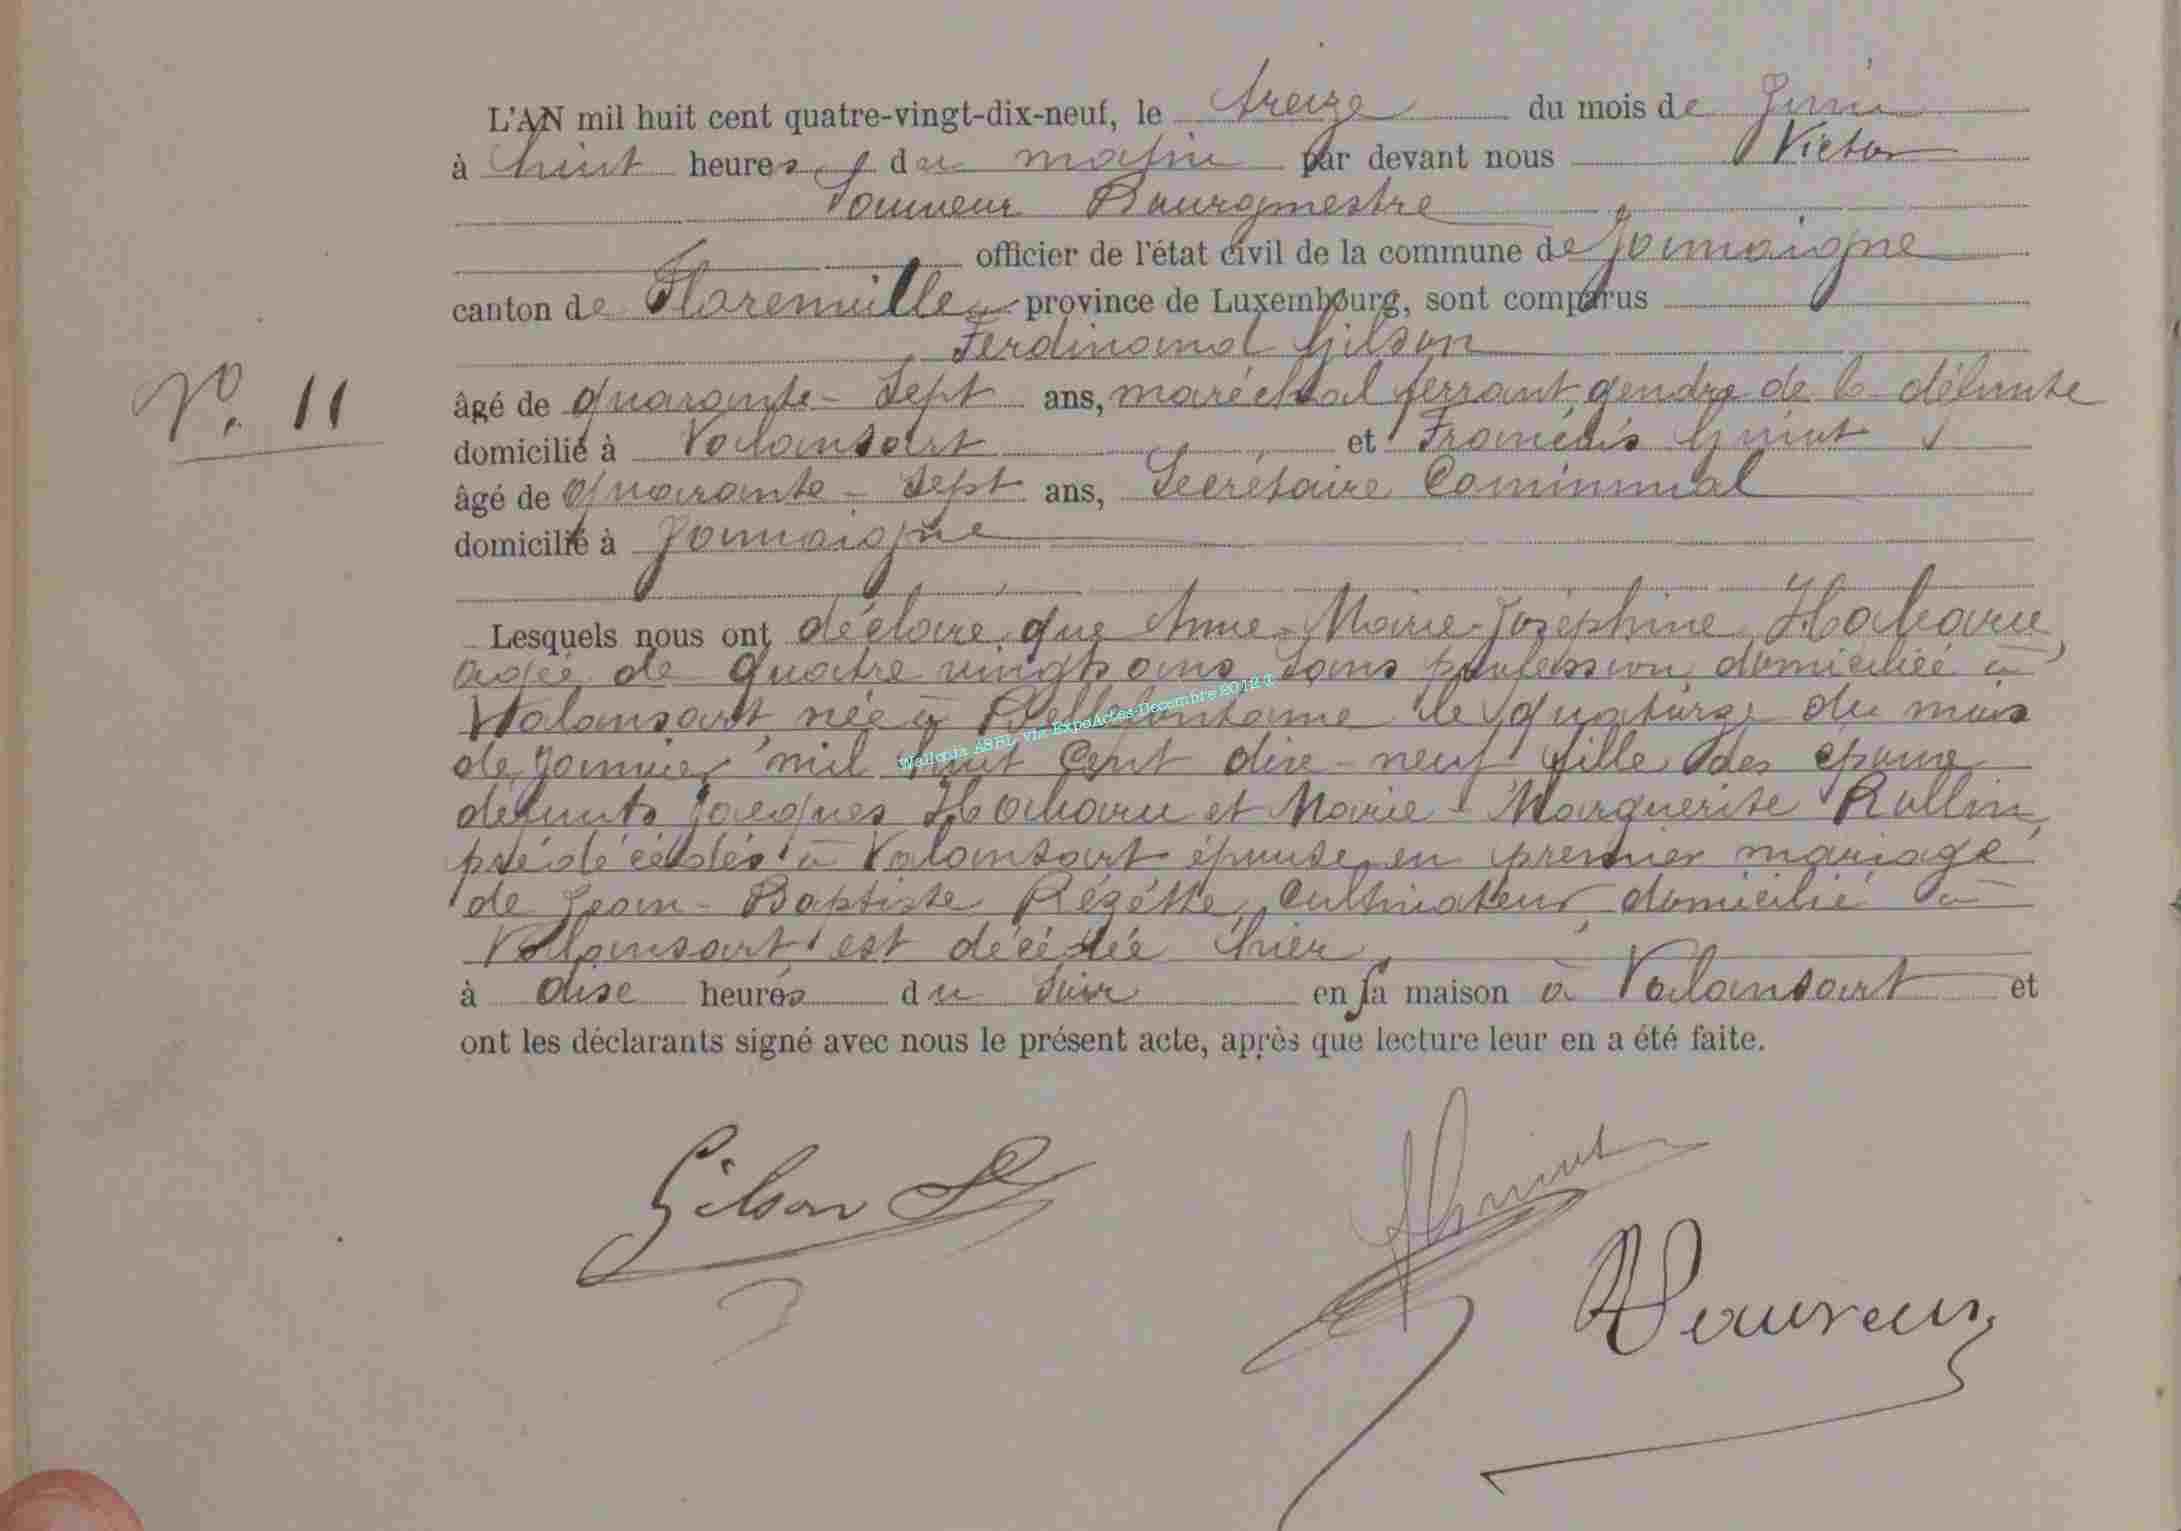 L'AN mil huit cent quatre-vingt-dix-neuf, le treize du mois de Juin
à huit heures du matin par devant nous Victor
Bourgmestre
officier de l'état civil de la commune de Jamoigne
canton de Florenville province de Luxembourg, sont comparus
Ferdinand Gilson
N°. 11
âgé de quarante-sept ans, maréchal ferrant, gendre de la défunte
domicilié à Valansart et François Guiot
âgé de quarante-sept ans, Secrétaire Communal
domicilié à Jamoigne
Lesquels nous ont déclaré que Anne-Marie-Joséphine
agée de quatre vingts ans sans profession domiciliée à
Valansart, née à Bellefontaine le quatorze du mois
de Janvier mil huit cent dix-neuf fille des époux
défunts Jacques et Marie-Marguerite Rollin,
prédécédés à Valansart épouse en premier mariage
de Jean-Baptiste cultivateur domicilié à
Valansart est décédée hier
à dix heures du soir en sa maison à Valansart et
ont les déclarants signé avec nous le présent acte, après que lecture leur en a été faite.
Wallonia ASBL via ExpoActes Decembre 2012
Gilson F